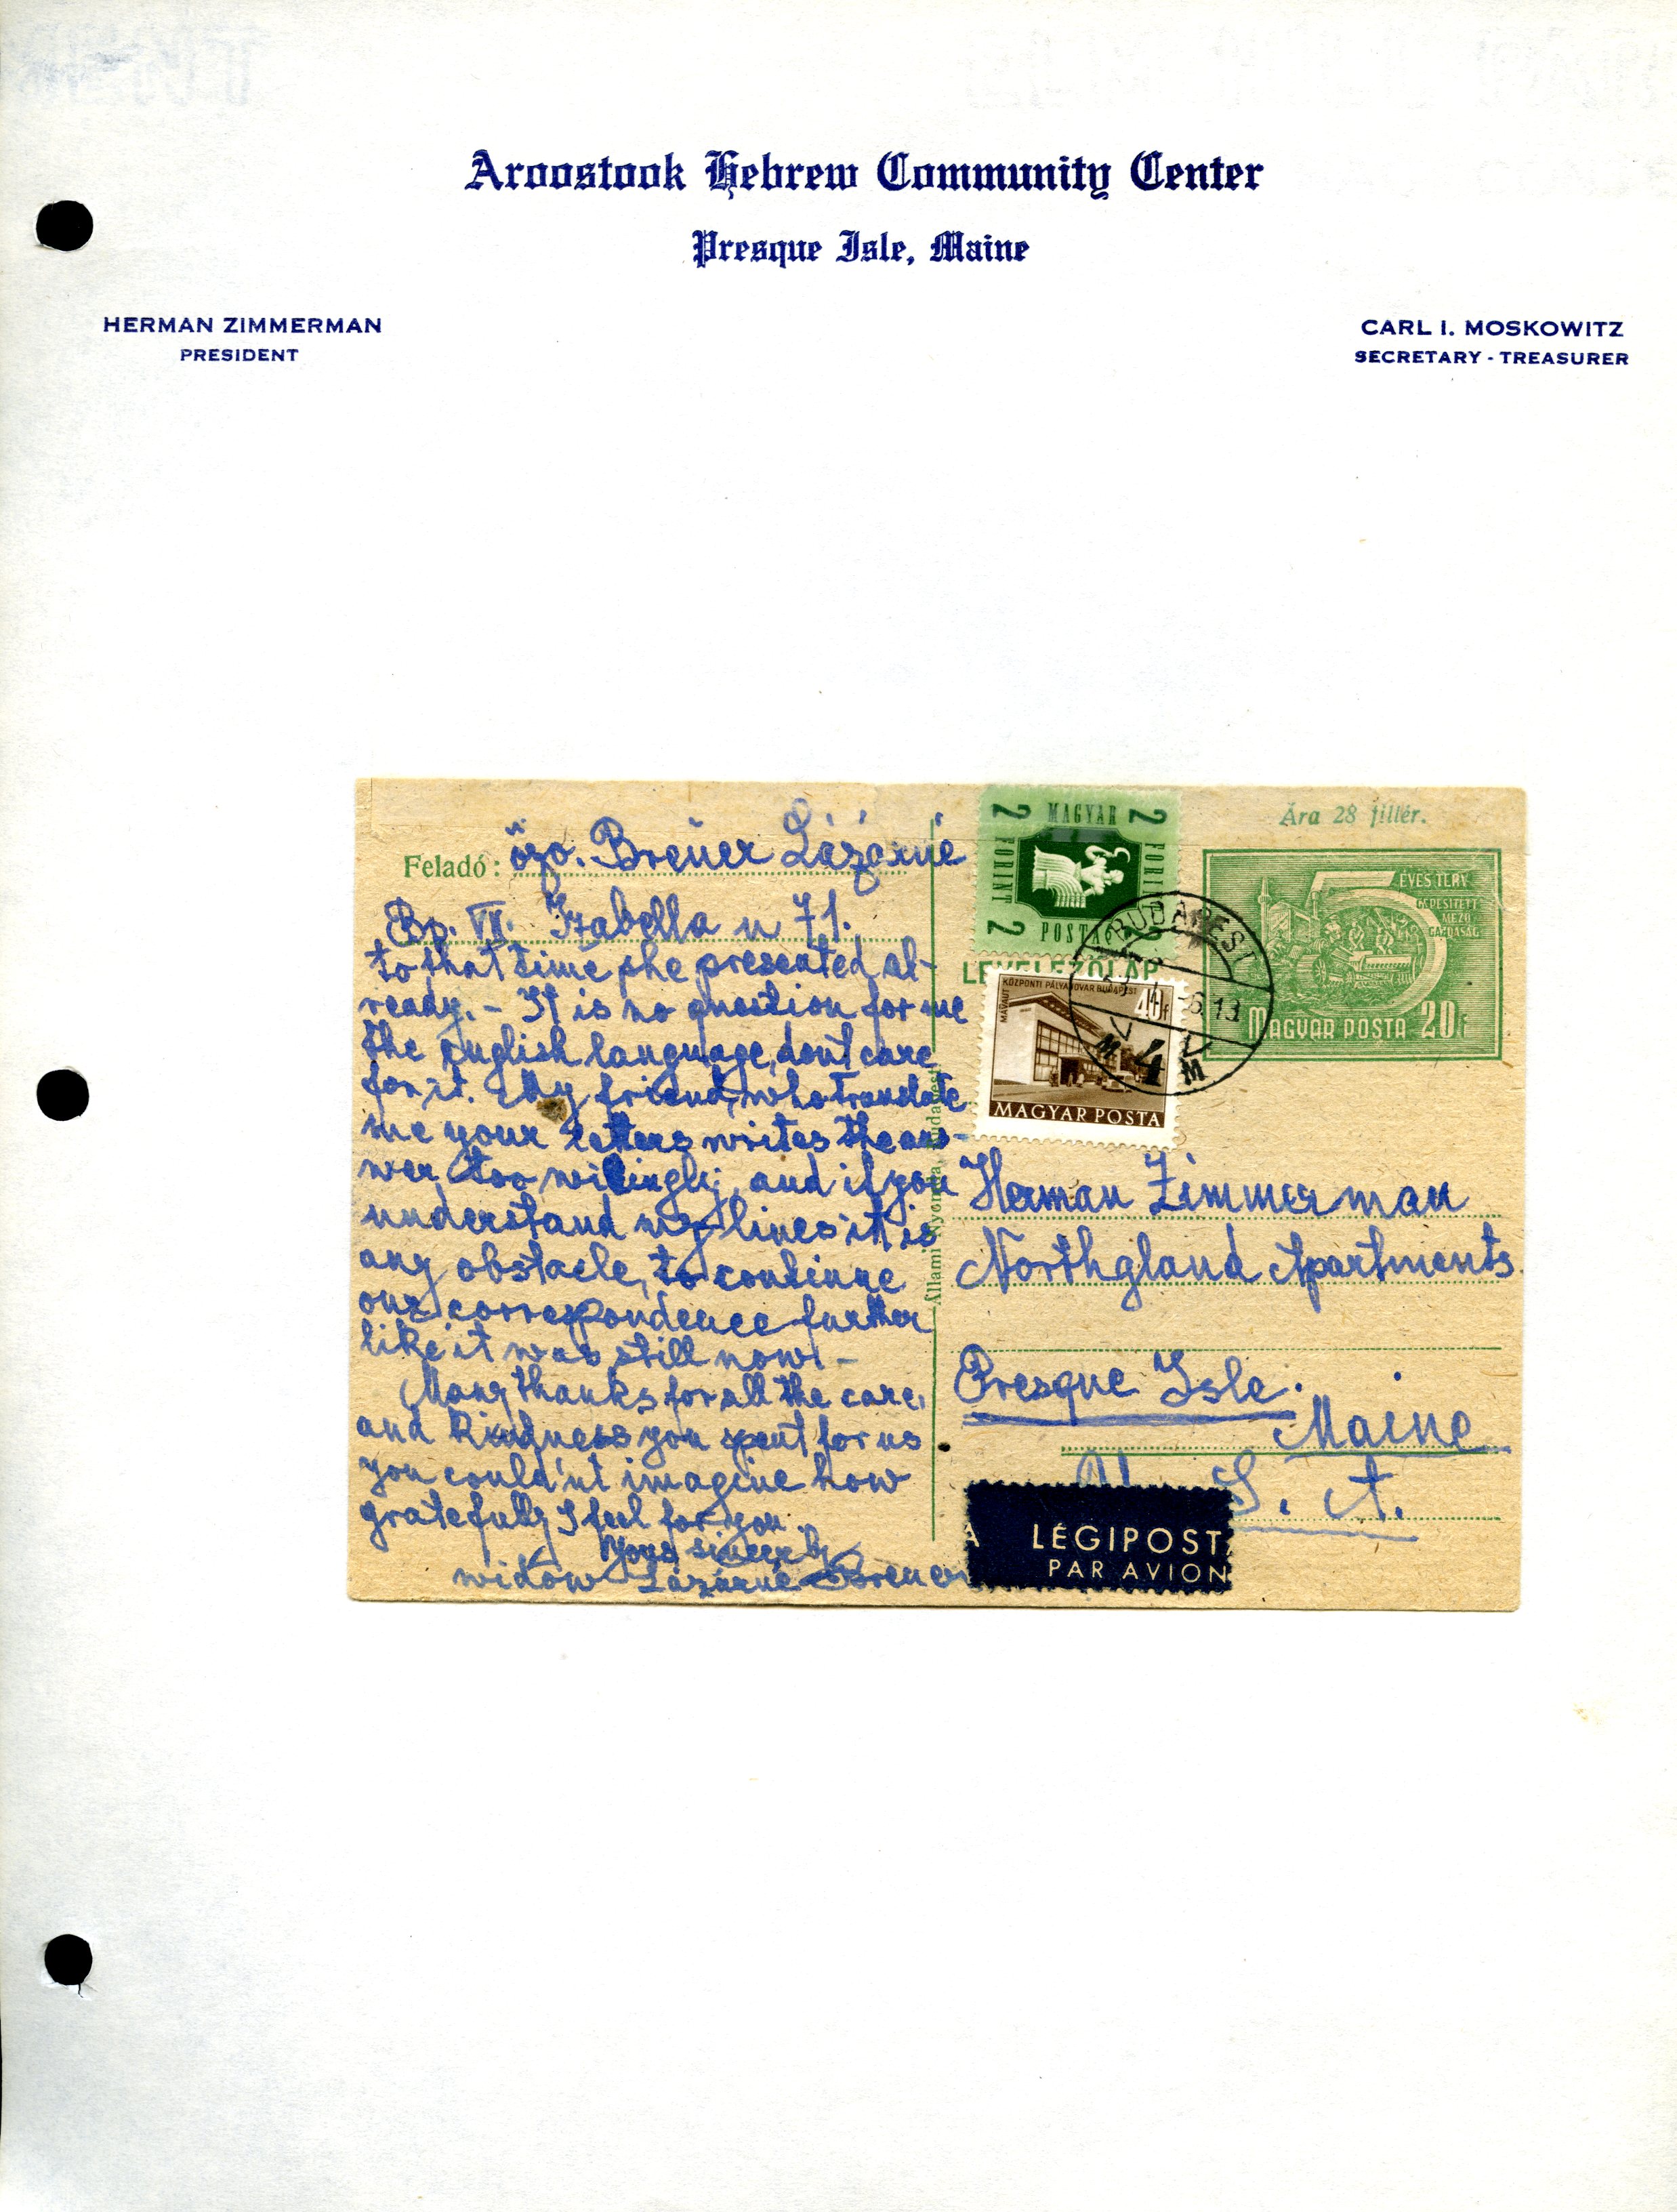 Aroostook Hebrew Community Center
Presque Isle, Maine
HERMAN ZIMMERMAN
PRESIDENT
CARL I. MOSKOWITZ
SECRETARY - TREASURER
Feladó: özv. Breuer Lázárné
Bp. VII. Izabella u 71.
to that time she presented al-
ready. - It is no question for me
the english language, dont care
for it. My friend, who translate
me your letters writes the ans-
wer too wilingly, and if you
understand my lines it is
any obstacle, to continue
our correspondence further
like it was still now. -
Many thanks for all the care,
and Kindness you spent for us
you could'nt imagine how
gratefully I feel for you.
Yours sincerely
widow Lázárné Breuer
MAGYAR
2 FORINT 2
POSTA
LEVELEZŐLAP
MÁVAUT KÖZPONTI PÁLYAUDVAR BUDAPEST
40f
MAGYAR POSTA
BUDAPEST
4
M
Ára 28 fillér.
5 ÉVES TERV
GÉPESÍTETT
MEZŐ-
GAZDASÁG
MAGYAR POSTA 20f
Állami Nyomda, Budapest
Herman Zimmerman
Northgland Apartments
Presque Isle.
Maine
U. S. A.
LÉGIPOSTA
PAR AVION